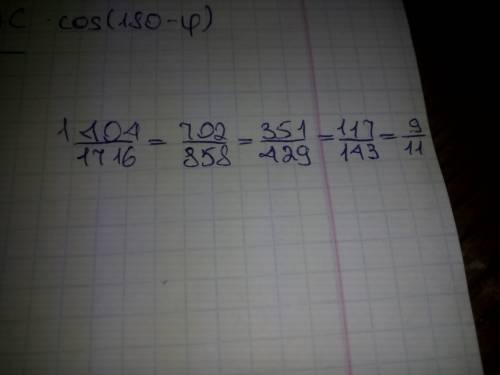 C · cos(180-φ)
1404/1716 = 702/858 = 351/429 = 117/143 = 9/11